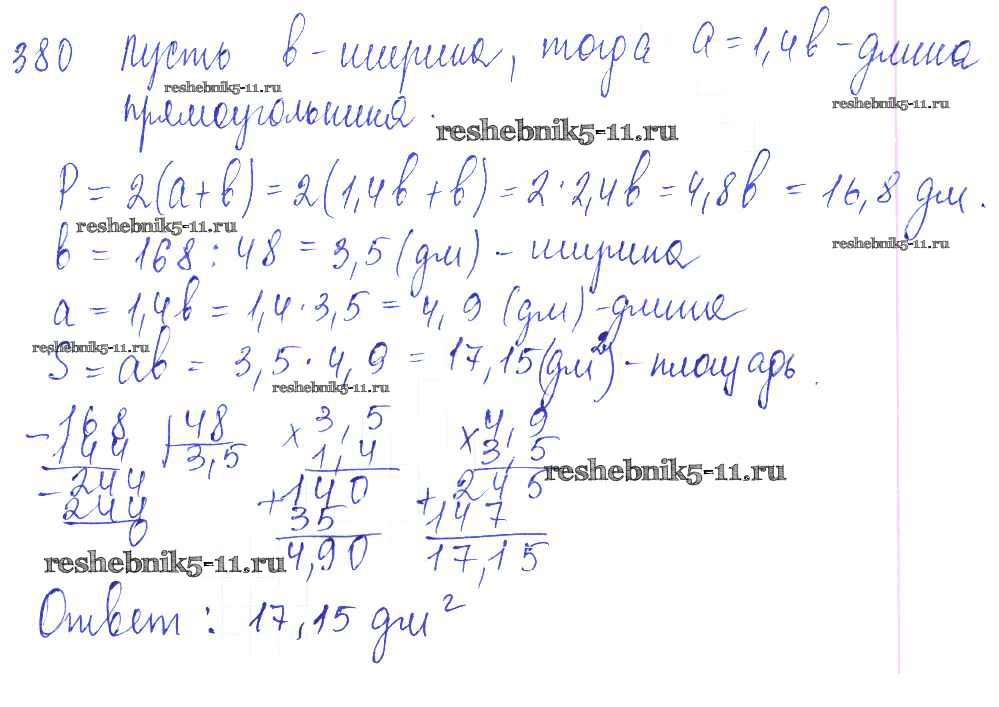 380 Пусть в - ширина, тогда а = 1,4в - длина
reshebnik5-11.ru
reshebnik5-11.ru
прямоугольника.
reshebnik5-11.ru
P = 2(а + в) = 2(1,4в + в) = 2 · 2,4в = 4,8в = 16,8 дм.
reshebnik5-11.ru
reshebnik5-11.ru
в = 168 : 48 = 3,5 (дм) - ширина
а = 1,4в = 1,4 · 3,5 = 4,9 (дм) - длина
reshebnik5-11.ru
S = ав = 3,5 · 4,9 = 17,15 (дм²) - площадь.
reshebnik5-11.ru
- 168 | 48 × 3,5 × 4,9
144 3,5 1,4 3,5
reshebnik5-11.ru
- 244 + 140 + 245
244 35 147
0 4,90 17,15
reshebnik5-11.ru
Ответ: 17,15 дм²